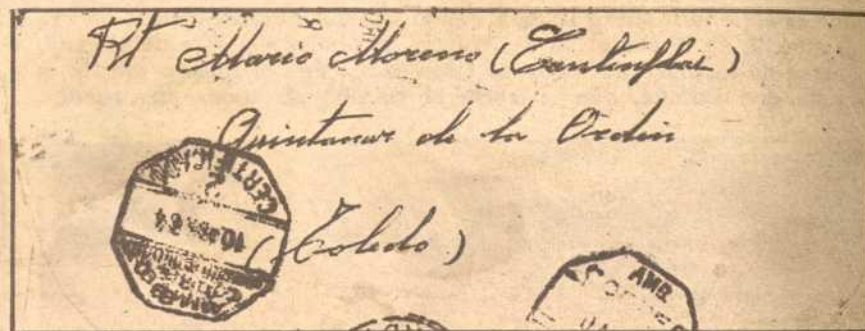 Rt Mario Moreno (Cantinflas)
Quintanar de la Orden
(Toledo)
CERTIFICADO
2
10
64
AMB